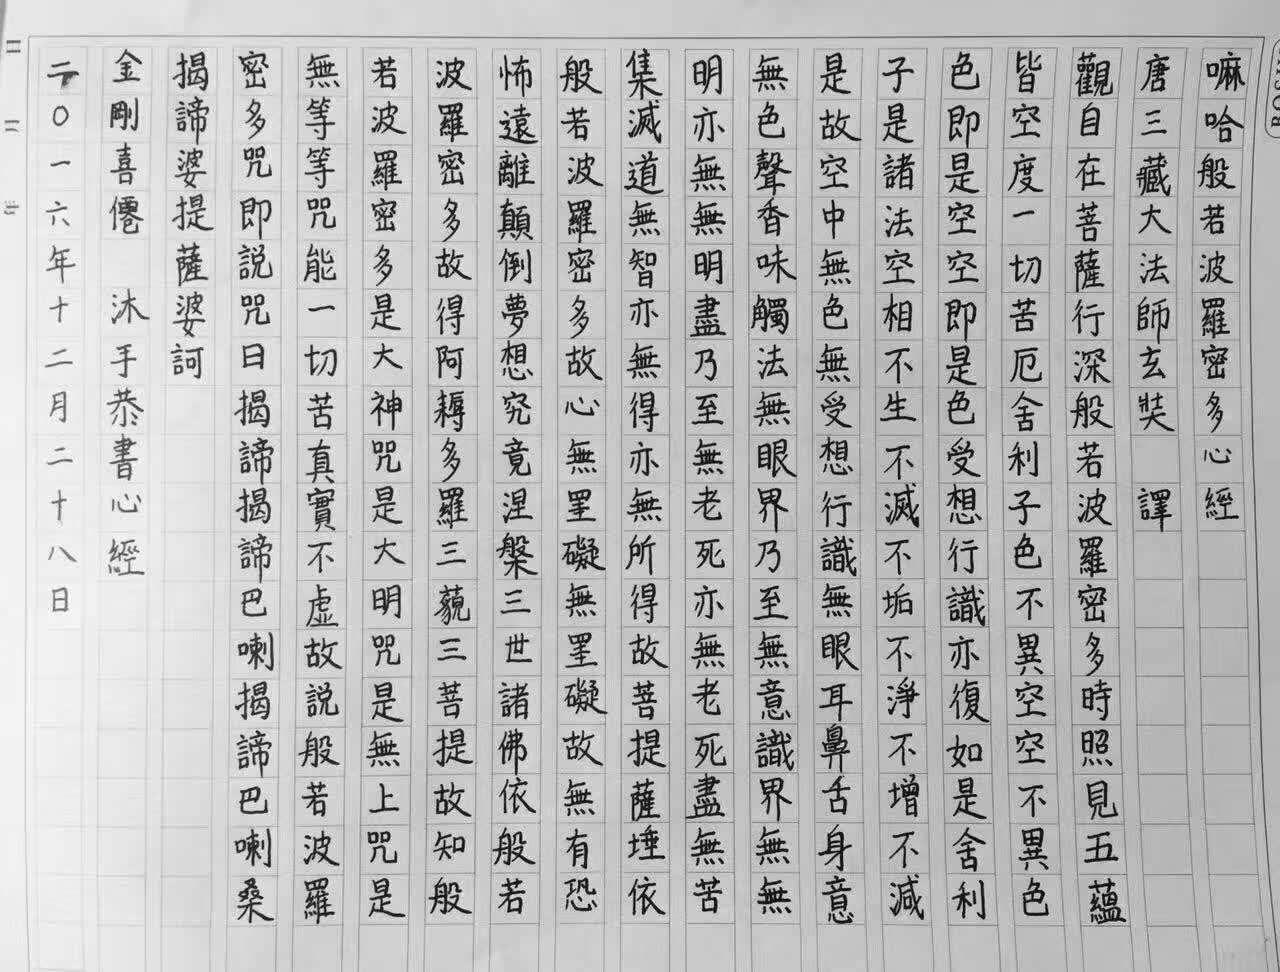 嘛哈般若波羅密多心經
唐三藏大法師玄奘 譯
觀自在菩薩行深般若波羅密多時照見五蘊
皆空度一切苦厄舍利子色不異空空不異色
色即是空空即是色受想行識亦復如是舍利
子是諸法空相不生不滅不垢不淨不增不減
是故空中無色無受想行識無眼耳鼻舌身意
無色聲香味觸法無眼界乃至無意識界無無
明亦無無明盡乃至無老死亦無老死盡無苦
集滅道無智亦無得亦無所得故菩提薩埵依
般若波羅密多故心無罣礙無罣礙故無有恐
怖遠離顛倒夢想究竟涅槃三世諸佛依般若
波羅密多故得阿耨多羅三藐三菩提故知般
若波羅密多是大神咒是大明咒是無上咒是
無等等咒能一切苦真實不虛故説般若波羅
密多咒即説咒曰揭諦揭諦巴喇揭諦巴喇桑
揭諦婆提薩婆訶
金剛喜僊 沐手恭書心經
二〇一六年十二月二十八日